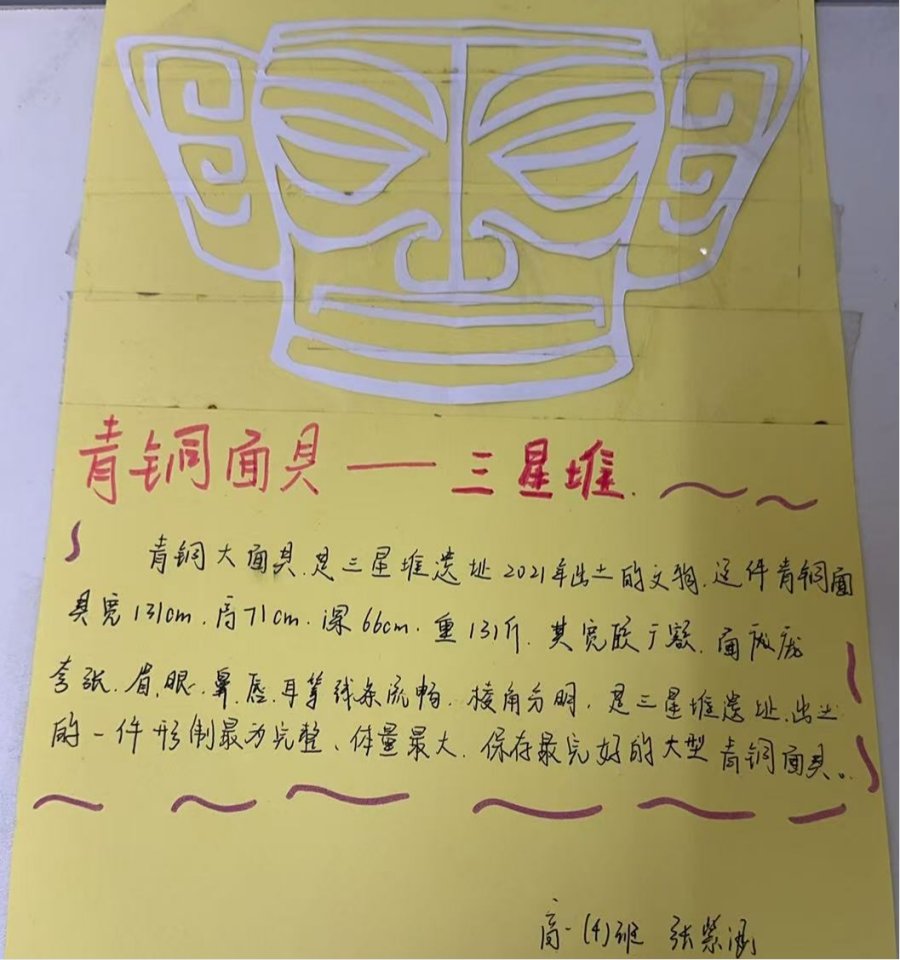 青铜面具——三星堆.
青铜大面具.是三星堆遗址2021年出土的文物.这件青铜面
具宽131cm.高71cm.深66cm.重131斤.其宽颐广额.面部庞
夸张.眉.眼.鼻.唇.耳等线条流畅.棱角分明,是三星堆遗址.出土
的一件形制最为完整、体量最大.保存最完好的大型青铜面具。
高一(4)班 张紫涵